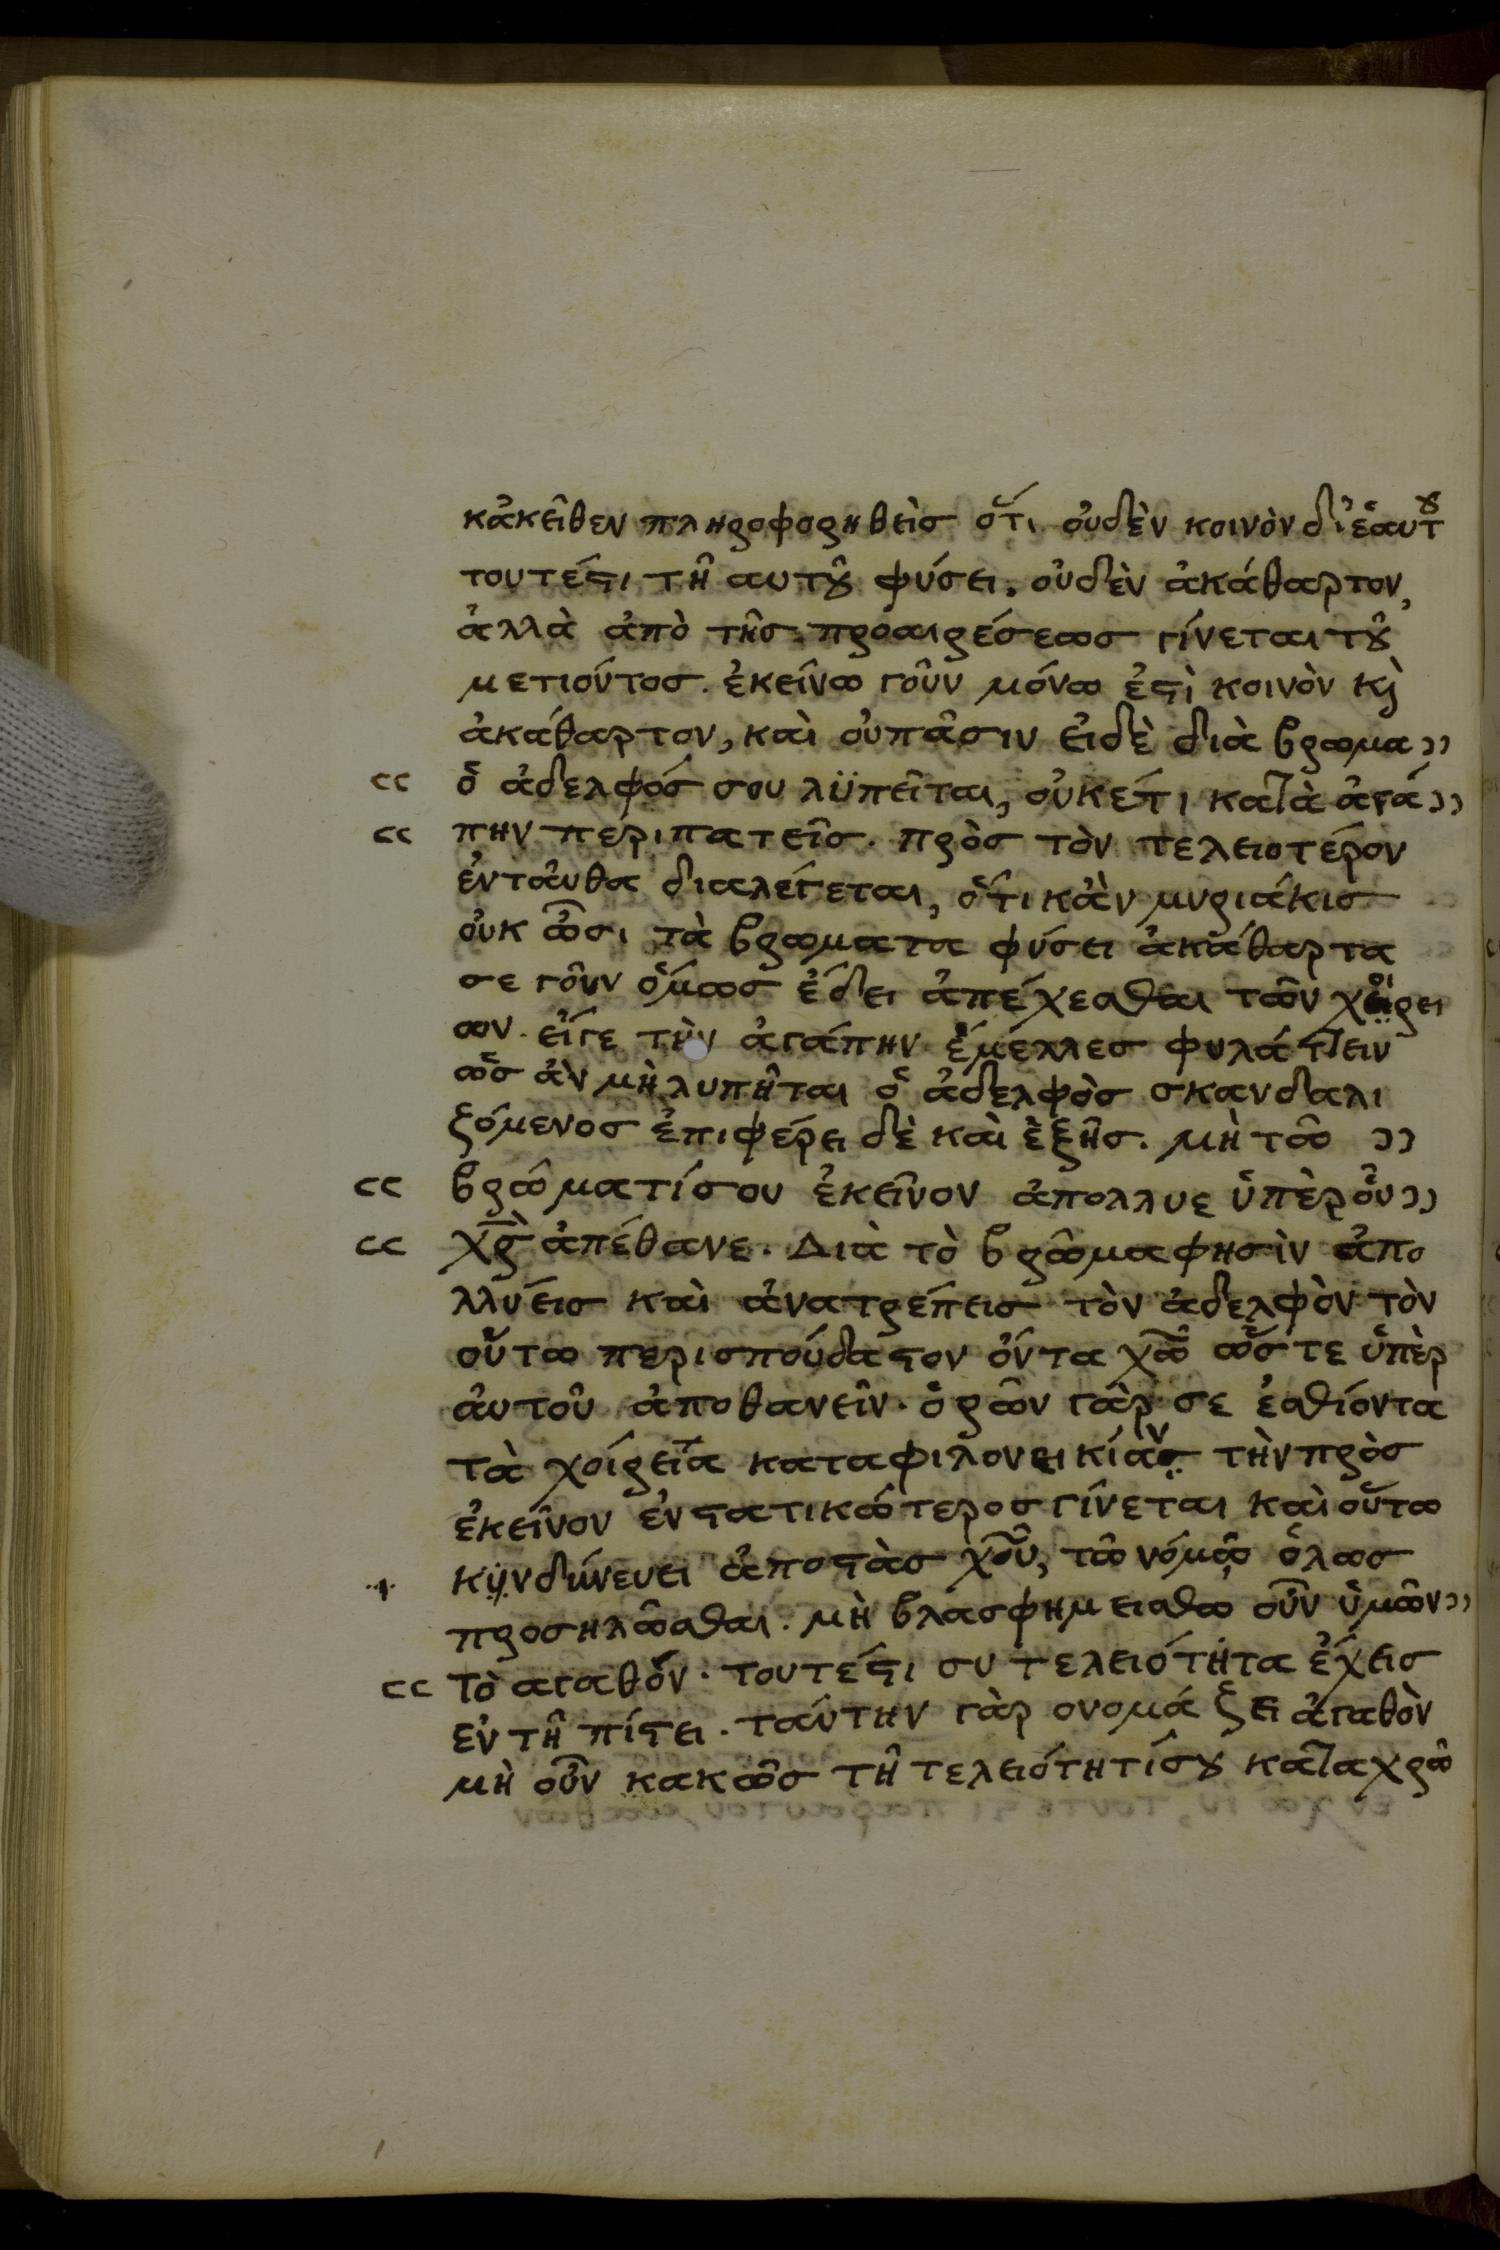 κἀκεῖθεν πληροφορηθεὶς ὅτι οὐδὲν κοινὸν δι' ἑαυτȣ
τουτέϛι τῆ αυτȣ͂ φύσει. οὐδὲν ἀκάθαρτον,
ἀλλὰ ἀπὸ τῆς προαιρέσεως γίνεται τȣ͂
μετιόντος. ἐκείνω γοῦν μόνω ἐϛὶ κοινὸν κὶ
ἀκάθαρτον, καὶ οὐ πᾶσιν εἰδὲ διὰ βρωμα ))
(( ὁ ἀδελφός σου λϋπεῖται, οὐκέτι κατὰ ἀγά ))
(( πην περιπατεῖς. πρὸς τὸν τελειοτέρον
ἐνταῦθα διαλέγεται, ὅτι κἀν μυριάκις
οὐκ ὦσι τὰ βρωματα φύσει ἀκάθαρτα
σε γοῦν ὅμως ἔδει ἀπέχεσθαι τῶν χοιρει
ων. εἴγε τὴν ἀγάπην ἔμέλλες φυλάττειν
ὥς ἀν μὴ λυπῆται ὁ ἀδελφὸς σκανδαλι
ζόμενος ἐπιφέρει δὲ καὶ ἑξῆς. μὴ τῶ ))
(( βρῶματίσου ἐκεῖνον ἀπολλυε ὑπὲρ οὗ ))
(( χς̀ ἀπέθανε. Διὰ τὸ βρῶμα φησὶν ἀπο
λλύεις καὶ ἀνατρέπεις τὸν ἀδελφὸν τὸν
οὕτω περισπούδαϛον ὄντα χῶ ὥστε ὑπὲρ
ἀυτοῦ ἀποθανεῖν. ὁρῶν γὰρ σε ἐσθίοντα
τὰ χοίρεια κατα φιλονεικίαν τὴν πρὸς
ἐκεῖνον ἐνϛατικώτερος γίνεται καὶ οὕτω
κϋνδύνευει ἀποϛὰς χοῦ, τῶ νόμῳ ὅλως
προσηλῶσθαι. μὴ βλασφημεισθω οὖν ὑμῶν ))
(( τὸ αγαθόν. τουτέϛι συ τελειότητα ἔχεις
εν τῆ πίϛει. ταύτην γὰρ ονομάζει ἀγαθὸν
μὴ οὖν κακῶς τῆ τελειότητίσȣ καταχρῶ